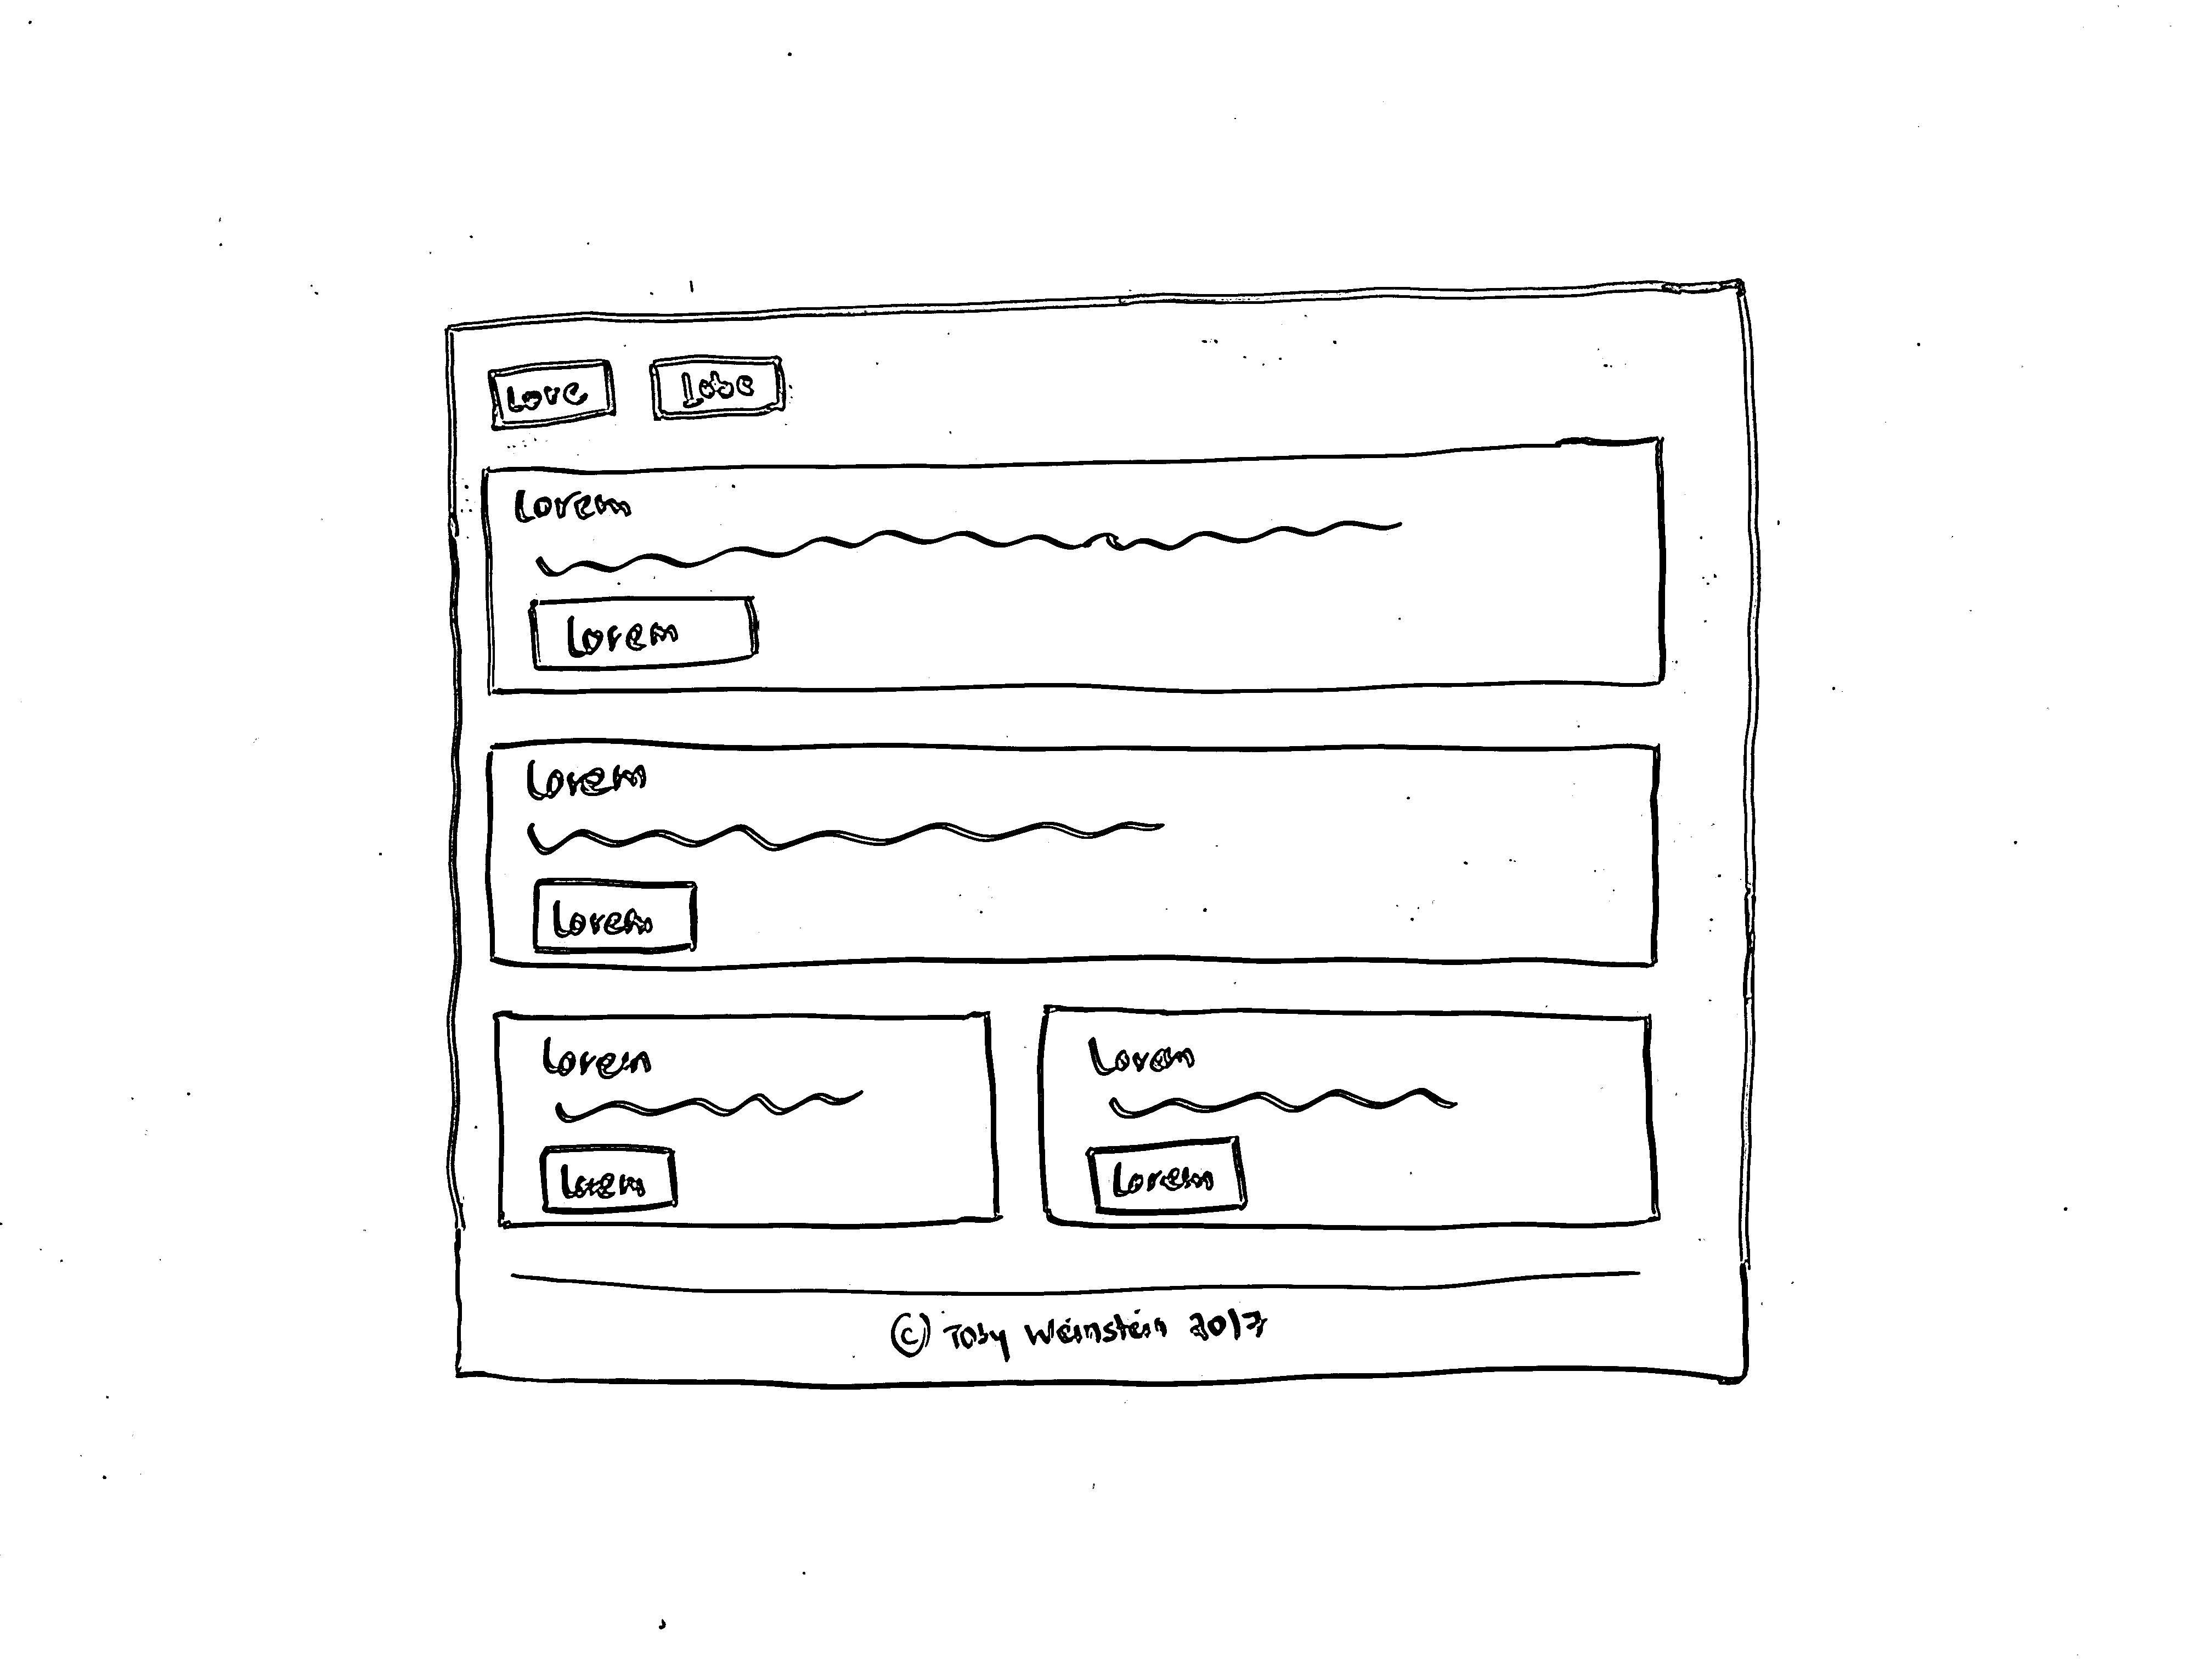 Love
Lobe
Lorem
Lorem
Lorem
Lorem
Lorem
Lorem
Lorem
Lorem
© Toby Weinstein 2017